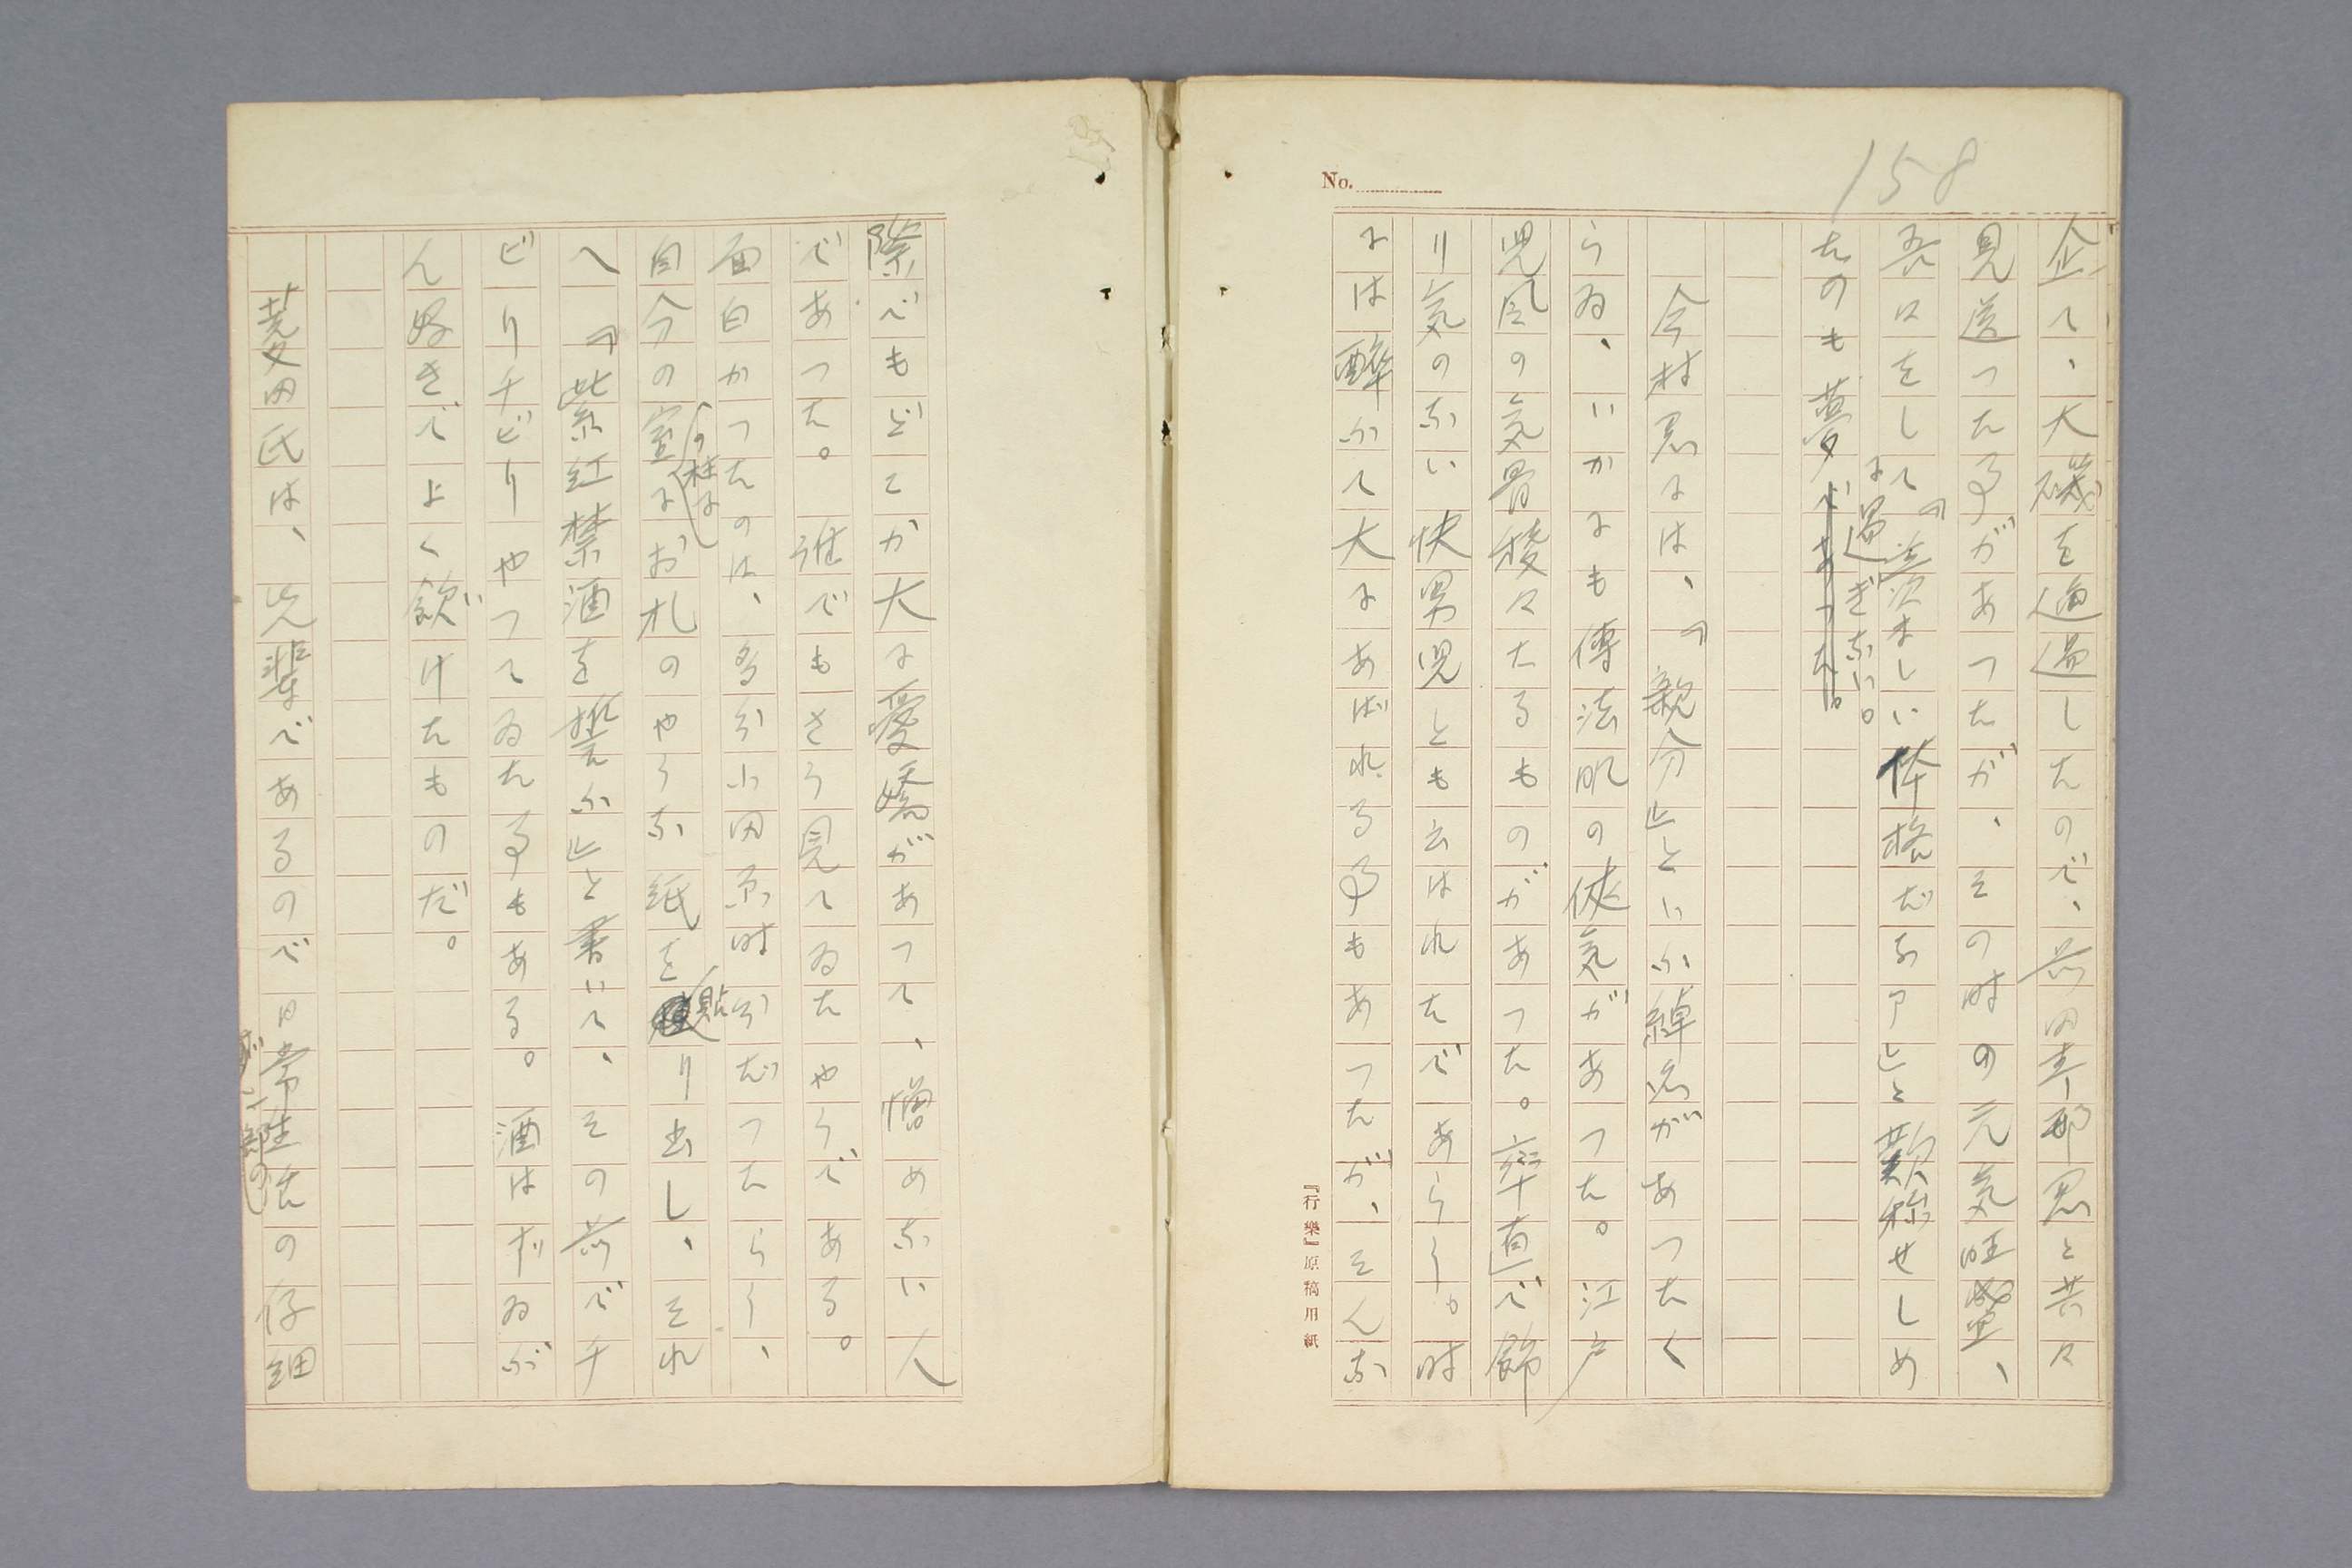 158
No.
企て、大磯を通過したので、前田青邨君と共々
見送つた事があつたが、その時の元気旺盛、
吾々をして『羨ましい体格だなア』と歎称せしめ
たのも夢に過ぎない。であつた。
今村君には、『親分』といふ綽名があつたく
らゐ、いかにも傳法肌の侠気があつた。江戸
児風の気骨稜々たるものがあつた。率直で飾
り気のない快男児とも云はれたであらう。時
には酔ふて大にあばれる事もあつたが、そんな
『行樂』原稿用紙
際でもどこか大に愛嬌があつて、憎めない人
であつた。誰でもさう見てゐたやうである。
面白かつたのは、多分小田原時分だつたらう、
自分の室の柱にお札のやうな紙を貼り出し、それ
へ『紫紅禁酒を誓ふ』と書いて、その前でチ
ビりチビりやつてゐた事もある。酒はずゐぶ
ん好きでよく飲けたものだ。
菱田氏は、先輩であるので日常生活の仔細